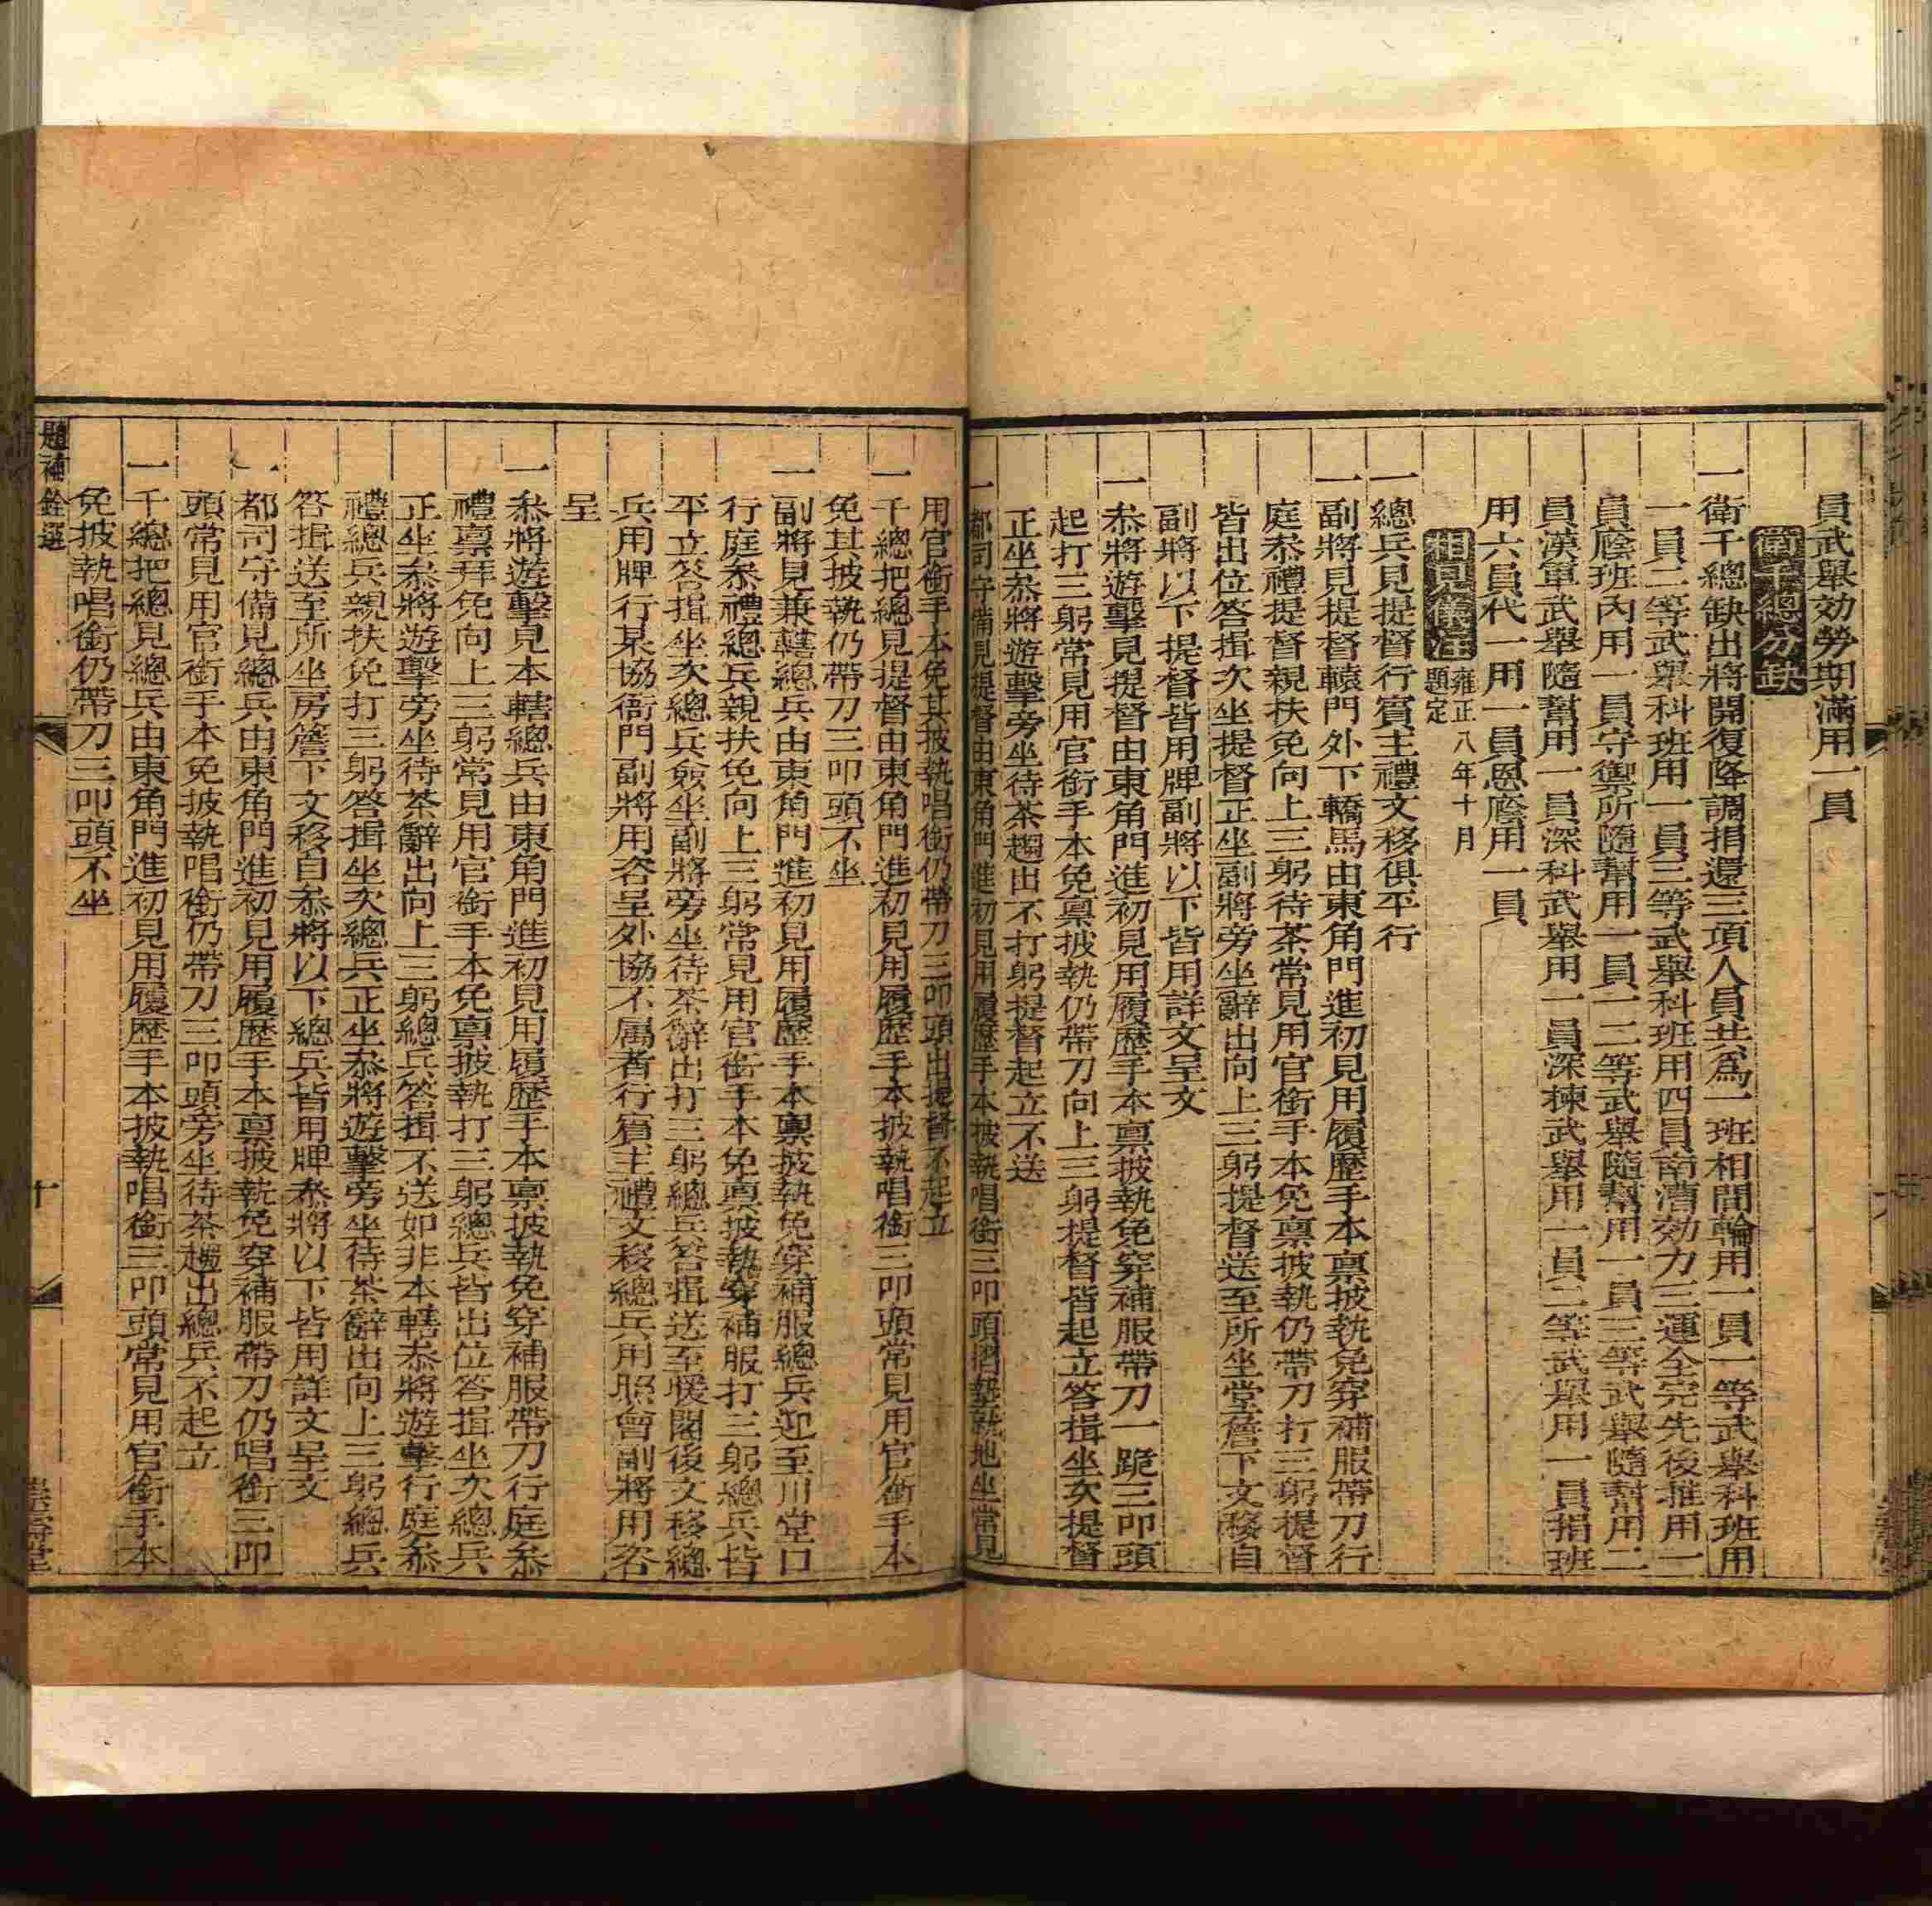 員武舉効勞期滿用一員
衛千總分缺
一衛千總缺出將開復降調捐還三項人員共爲一班相間輪用一員一等武舉科班用
一員二等武舉科班用一員三等武舉科班用四員南漕効力三運全完先後推用一
員廕班內用一員守禦所隨幫用一員一二等武舉隨幫用一員三等武舉隨幫用二
員漢軍武舉隨幫用一員深科武舉用一員深揀武舉用一員二等武舉用一員捐班
用六員代一用一員恩廕用一員
相見儀注 雍正八年十月題定
一總兵見提督行賓主禮文移俱平行
一副將見提督轅門外下轎馬由東角門進初見用履歷手本禀披執免穿補服帶刀行
庭叅禮提督親扶免向上三躬待茶常見用官銜手本免禀披執仍帶刀打三躬提督
皆出位答揖次坐提督正坐副將旁坐辭出向上三躬提督送至所坐堂簷下文移自
副將以下提督皆用牌副將以下皆用詳文呈文
一叅將遊擊見提督由東角門進初見用履歷手本禀披執免穿補服帶刀一跪三叩頭
起打三躬常見用官銜手本免禀披執仍帶刀向上三躬提督皆起立答揖坐次提督
正坐叅將遊擊旁坐待茶趨出不打躬提督起立不送
一都司守備見提督由東角門進初見用履歷手本披執唱銜三叩頭墊就地坐常見
用官銜手本免其披執唱銜仍帶刀三叩頭出提督不起立
一千總把總見提督由東角門進初見用履歷手本披執唱銜三叩頭常見用官銜手本
免其披執仍帶刀三叩頭不坐
一副將見兼轄總兵由東角門進初見用履歷手本禀披執免穿補服總兵迎至川堂口
行庭叅禮總兵親扶免向上三躬常見用官銜手本免禀披執穿補服打三躬總兵皆
平立答揖坐次總兵僉坐副將旁坐待茶辭出打三躬總兵答揖送至暖閣後文移總
兵用牌行某協衙門副將用咨呈外協不属者行賓主禮文移總兵用照會副將用咨
呈
一叅將遊擊見本轄總兵由東角門進初見用履歷手本禀披執免穿補服帶刀行庭叅
禮禀拜免向上三躬常見用官銜手本免禀披執打三躬總兵皆出位答揖坐次總兵
正坐叅將遊擊旁坐待茶辭出向上三躬總兵答揖不送如非本轄叅將遊擊行庭叅
禮總兵親扶免打三躬答揖坐次總兵正坐叅將遊擊旁坐待茶辭出向上三躬總兵
答揖送至所坐房簷下文移自叅將以下總兵皆用牌叅將以下皆用詳文呈文
一都司守備見總兵由東角門進初見用履歷手本禀披執免穿補服帶刀仍唱銜三叩
頭常見用官銜手本免披執唱銜仍帶刀三叩頭旁坐待茶趨出總兵不起立
一千總把總見總兵由東角門進初見用履歷手本披執唱銜三叩頭常見用官銜手本
免披執唱銜仍帶刀三叩頭不坐
題補銓選
十